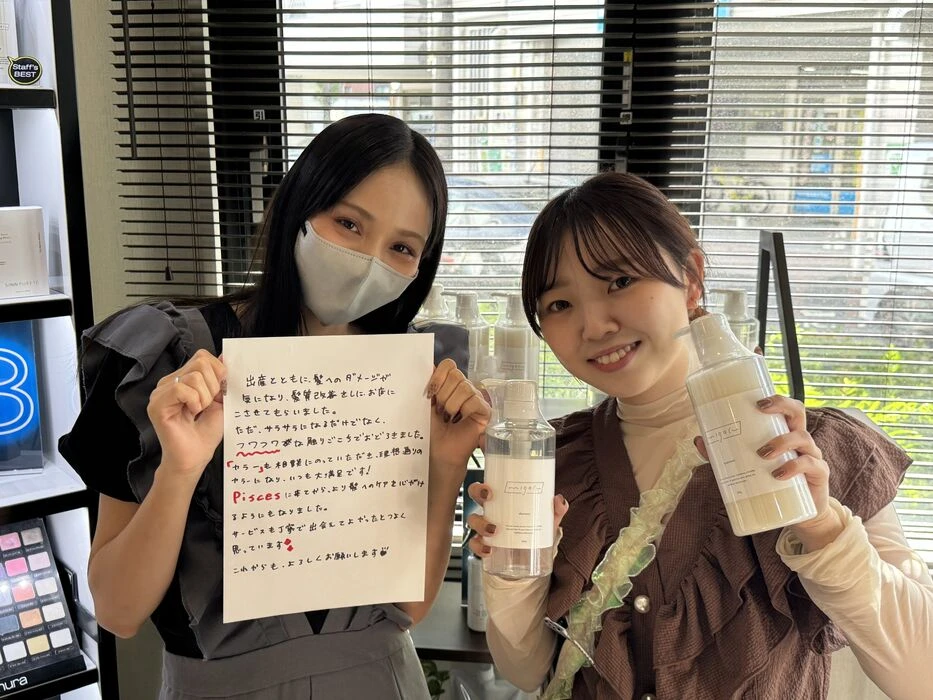 Staff's
BEST
出産とともに、髪へのダメージが
気になり、髪質改善をしにお店に
こさせてもらいました。
ただ、サラサラになるだけでなく、
フワフワな触りごこちでおどろきました。
「カラー」も相談にのっていただき、理想通りの
カラーになり、いつも大満足です!
Piscesに来てから、より髪へのケアを心がけ
るようにもなりました。
サービスも丁寧で出会えてよかったとつよく
思っています
これからも、よろしくお願いします